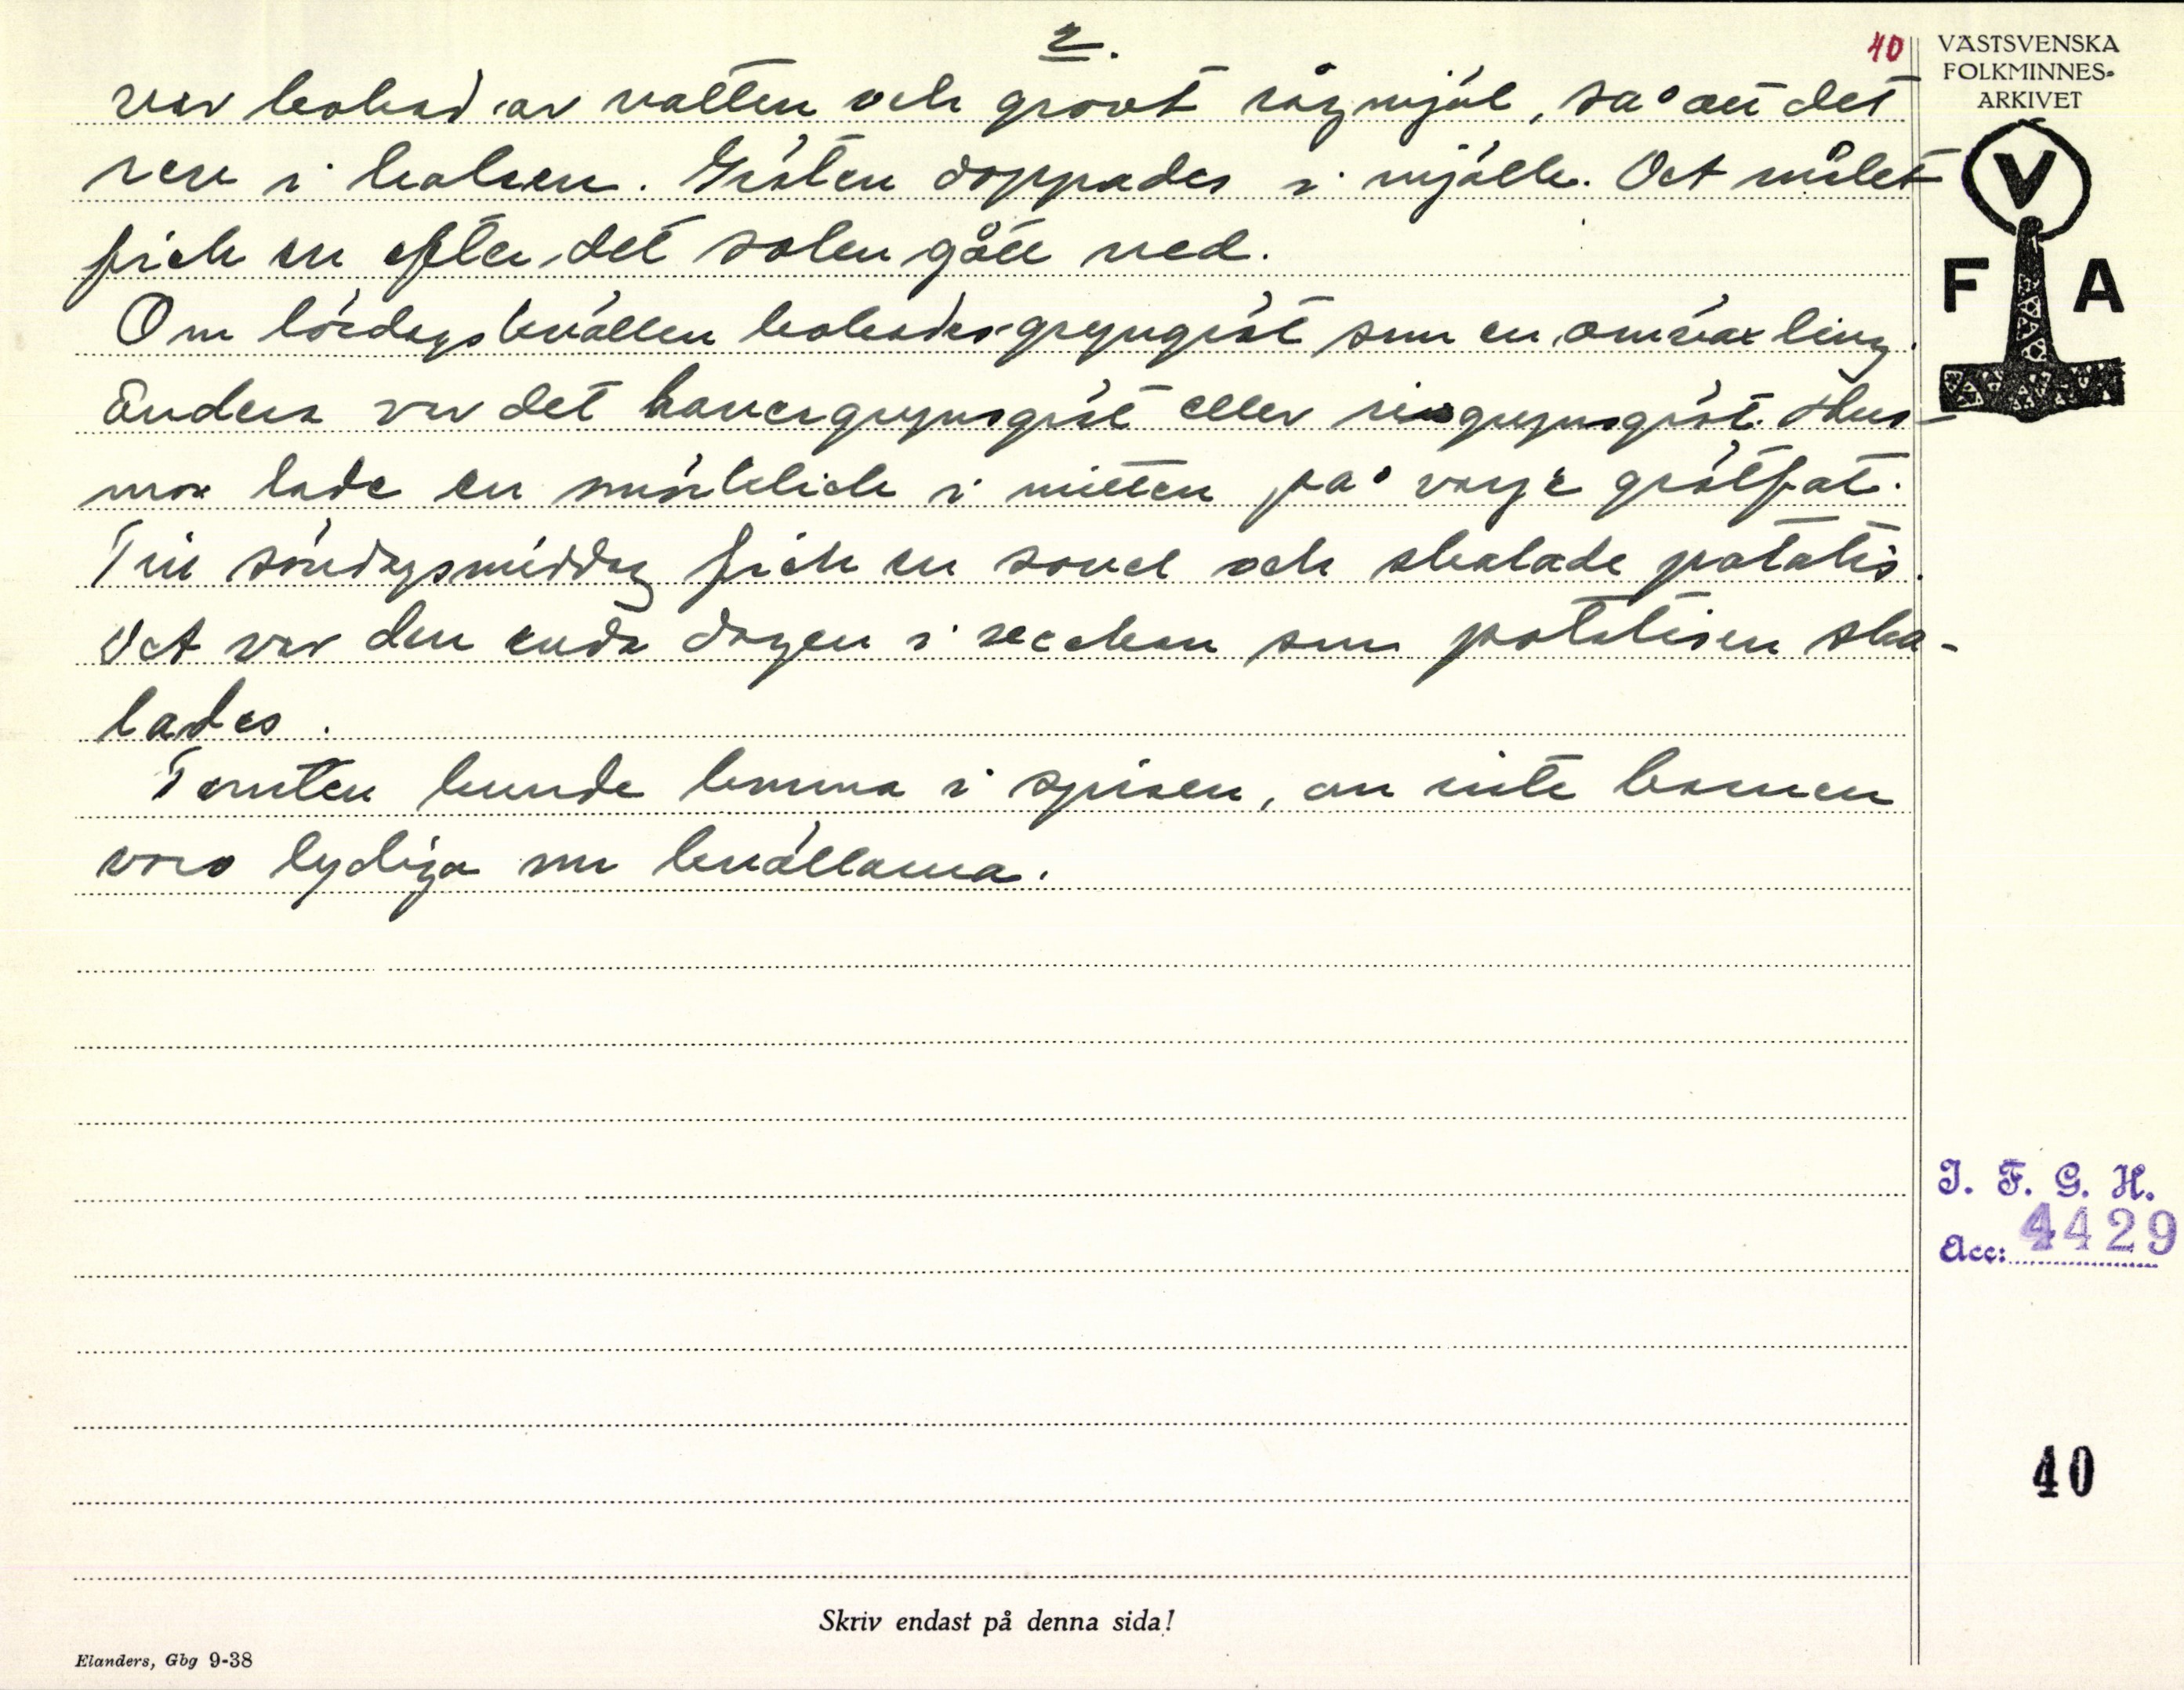 2.
40
var kokad av vatten och grovt rågmjöl, så att det
rev i halsen. Gröten doppades i mjölk. Det målet
fick en efter det solen gått ned.
Om lördagskvällen kokades gryngröt som en omväxling.
Endera var det havregrynsgröt eller risgrynsgröt. Hus-
mor lade en smörklick i mitten på varje grötfat.
Till söndagsmiddag fick en sovel och skalade potatis.
Det var den enda dagen i veckan som potatisen ska-
lades.
Tomten kunde komma i spisen, om inte barnen
voro lydiga om kvällarna.
VÄSTSVENSKA
FOLKMINNES-
ARKIVET
V
F A
I. F. G. H.
Acc: 4429
40
Skriv endast på denna sida!
Elanders, Gbg 9-38